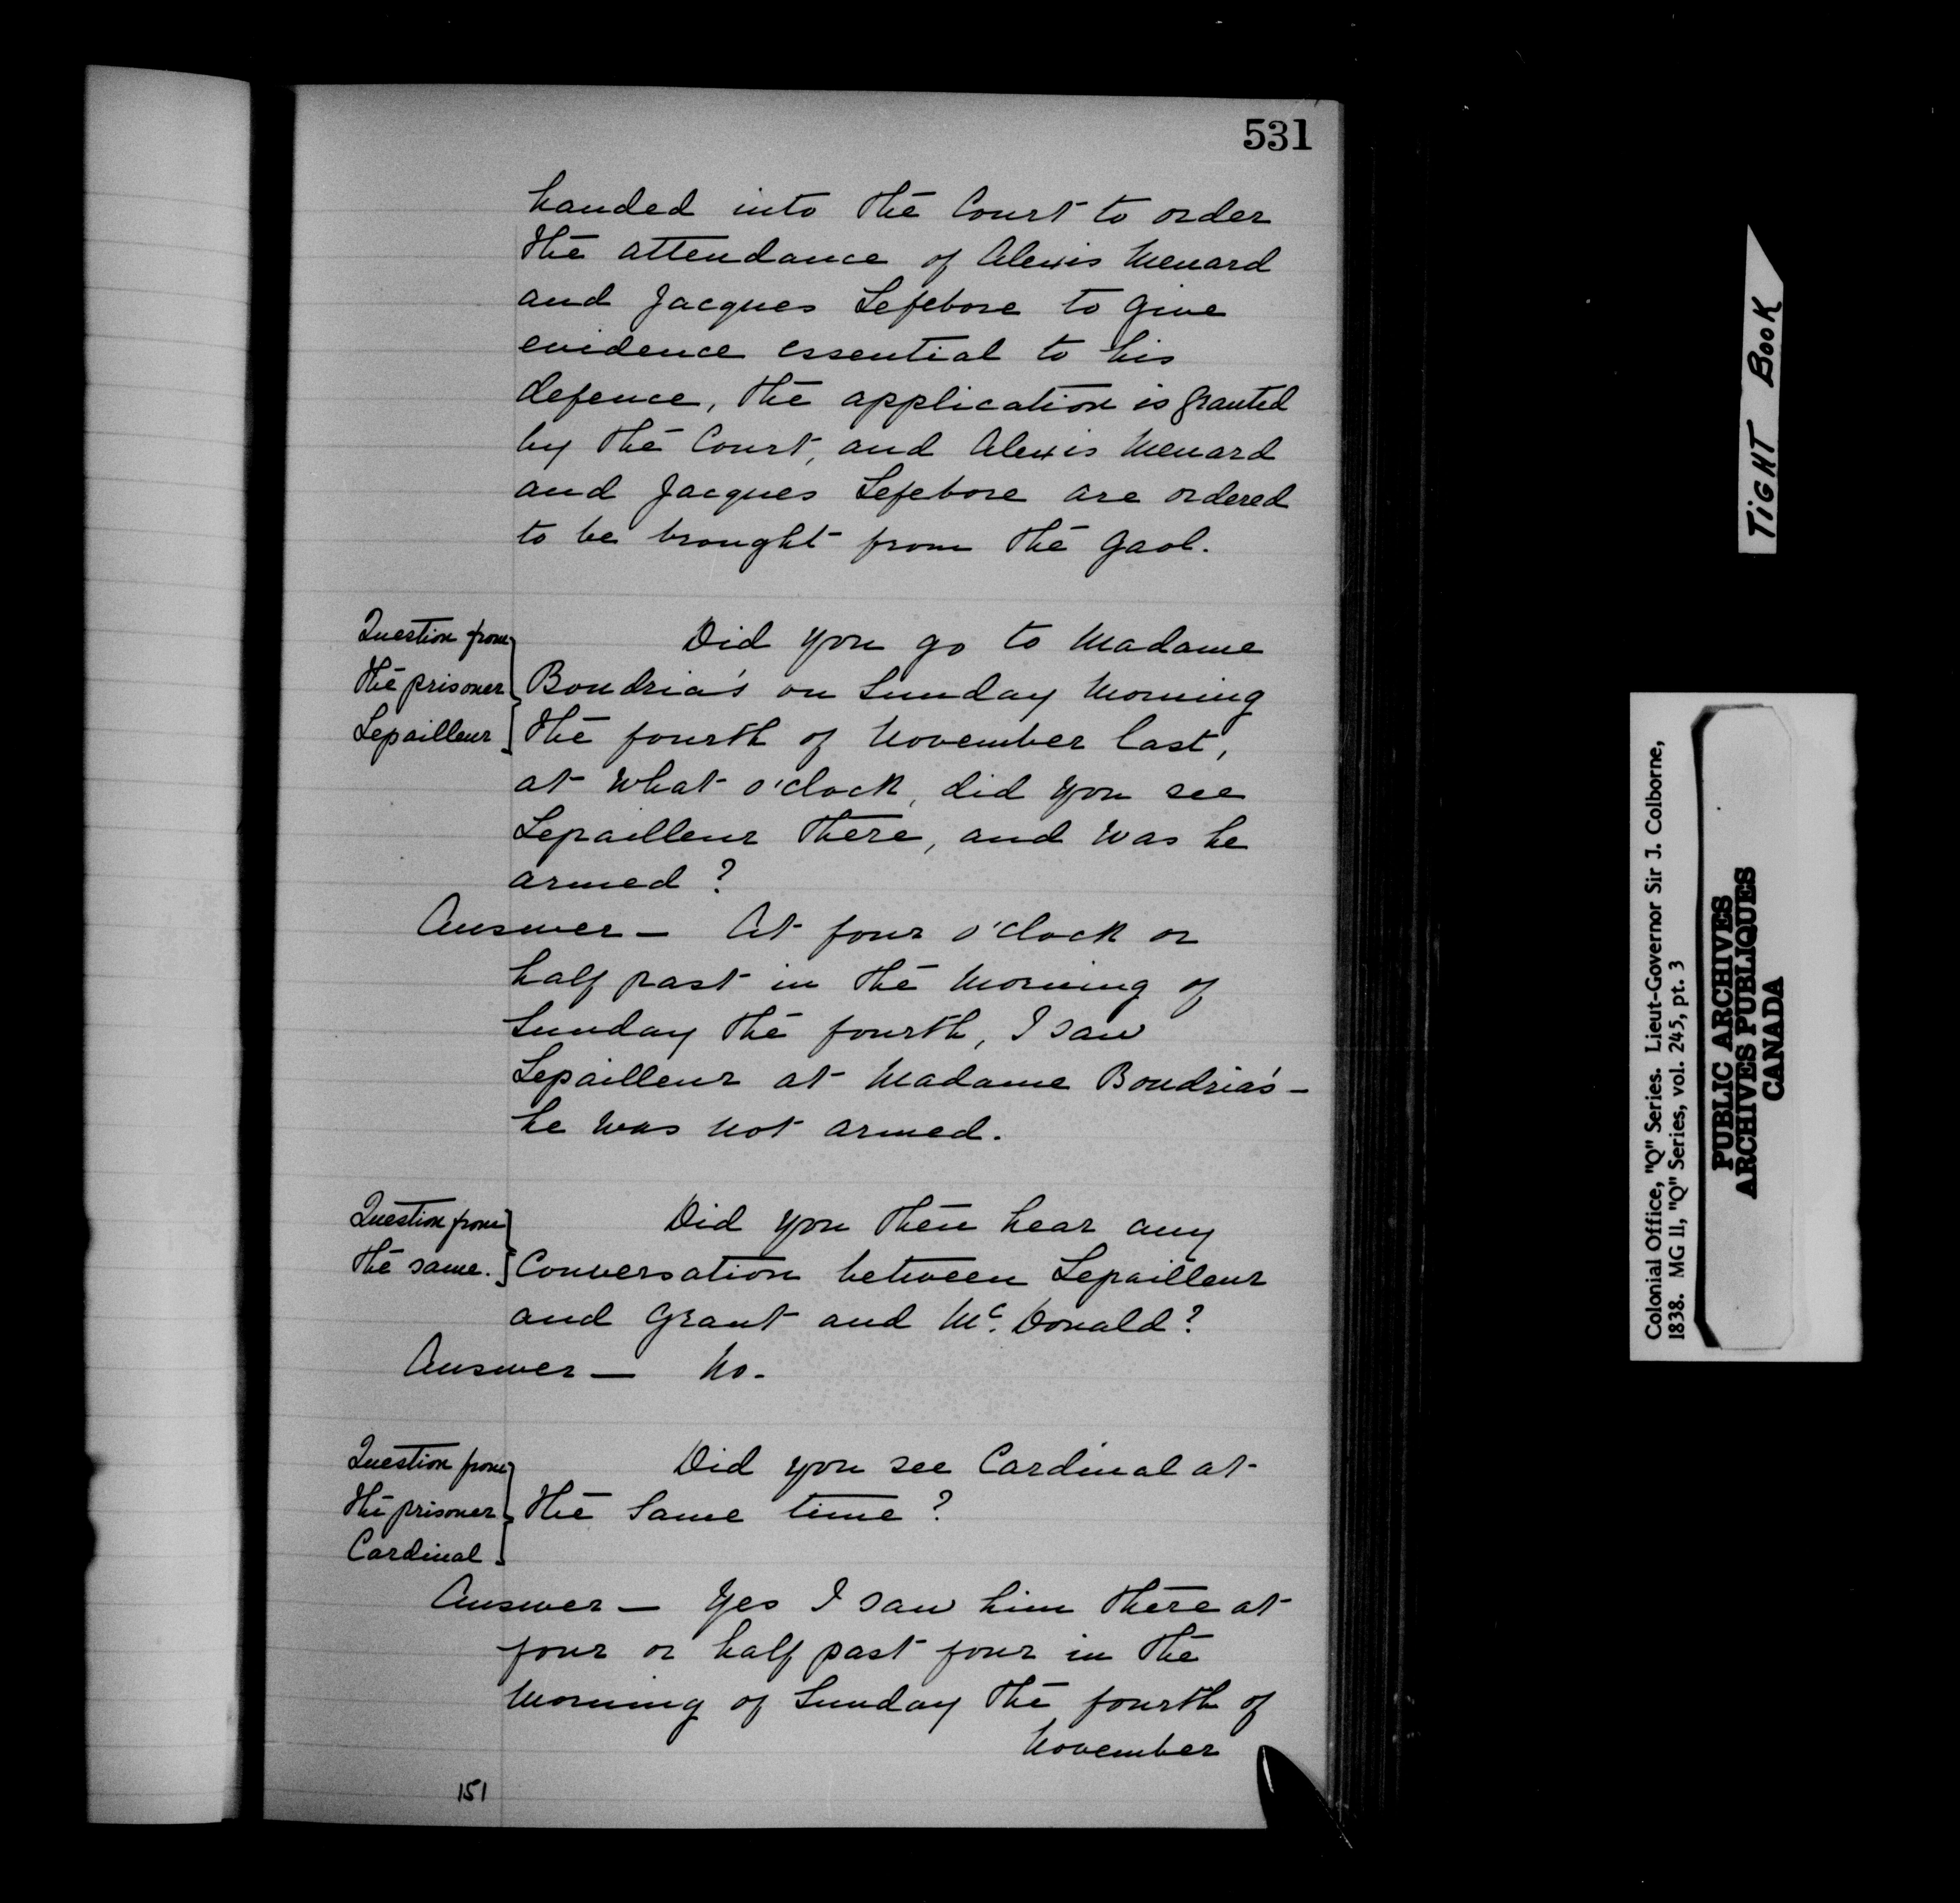 531
handed into the Court to order
the attendance of Alexis Menard
and Jacques Lefebvre to give
evidence essential to his
defence, the application is granted
by the Court, and Alexis Menard
and Jacques Lefebvre are ordered
to be brought from the gaol.
Question from
the prisoner
Lepailleur
Did you go to Madame
Boudria's on Sunday Morning
the fourth of November last,
at what o'clock, did you see
Lepailleur there, and was he
armed?
Answer — At four o'clock or
half past in the Morning of
Sunday the fourth, I saw
Lepailleur at Madame Boudria's —
he was not armed.
Question from
the same.
Did you then hear any
Conversation between Lepailleur
and Grant and Mc. Donald?
Answer — No.
Question from
the prisoner
Cardinal
Did you see Cardinal at
the same time?
Answer — Yes I saw him there at
four or half past four in the
Morning of Sunday the fourth of
November
151
TIGHT BOOK
Colonial Office, "Q" Series. Lieut-Governor Sir J. Colborne,
1838. MG 11, "Q" Series, vol. 245, pt. 3
PUBLIC ARCHIVES
ARCHIVES PUBLIQUES
CANADA